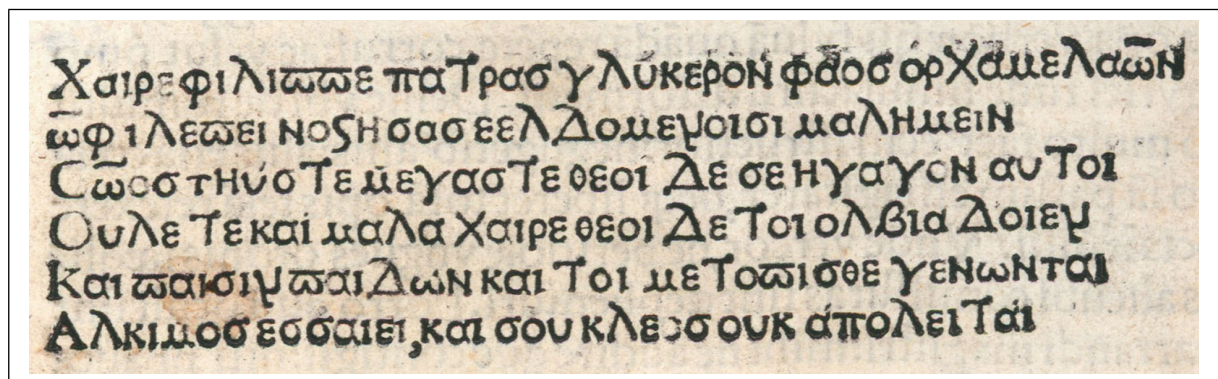 Χαιρε φιλιππε πάτρασ γλύκερὸν φάοσ όρχάμε λαῶν
ῶφιλεπει νοςησασ εελδομενοισι μαλημειν
Cῶοσ τηύσ τε μεγασ τε θεοι δε σε ηγαγον αυτοι
Ουλε τε καί μαλα χαιρε θεοι δε τοι ολβια δοιεν
Και παισιν παιδών και τοι μετοπισθε γενωνται
Αλκιμοσ εσσαιει, και σου κλεοσ ουκ άπολειται